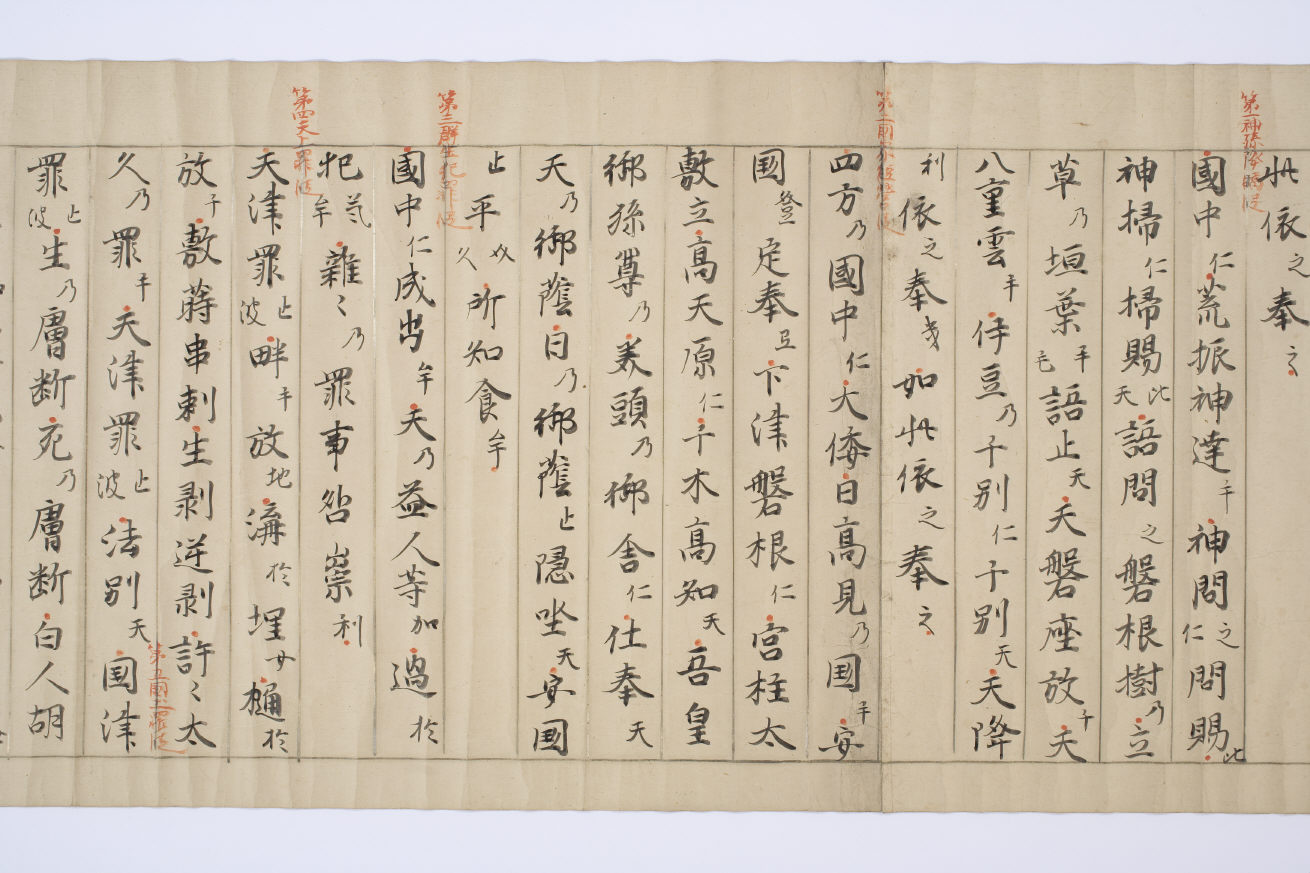 此依之奉之
第一神孫降臨段
国中仁荒振神達乎神問仁之問賜此
神掃仁掃賜天此語問之磐根樹乃立
草乃垣葉毛乎語止天天磐座放千天
八重雲乎伊豆乃千別仁千別天天降
利依之奉幾如此依之奉之
四方乃國中仁大倭日高見乃国乎安
国登定奉立下津磐根仁宮柱太
敷立高天原仁千木高知天吾皇
御孫尊乃美頭乃御舎仁仕奉天
天乃御蔭日乃御蔭止隠坐天安国
止平久奴所知食牟
第三群生犯罪段
國中仁成出牟天乃益人等加過於
犯牟氣雜々乃罪事咎崇利
第四天上罪段
天津罪波止畔乎放地溝於埋女樋於
放千敷蒔串刺生剥逆剥許々太
久乃罪乎天津罪波止法別天国津
第五國土罪段
罪波止生乃膚断死乃膚断白人胡